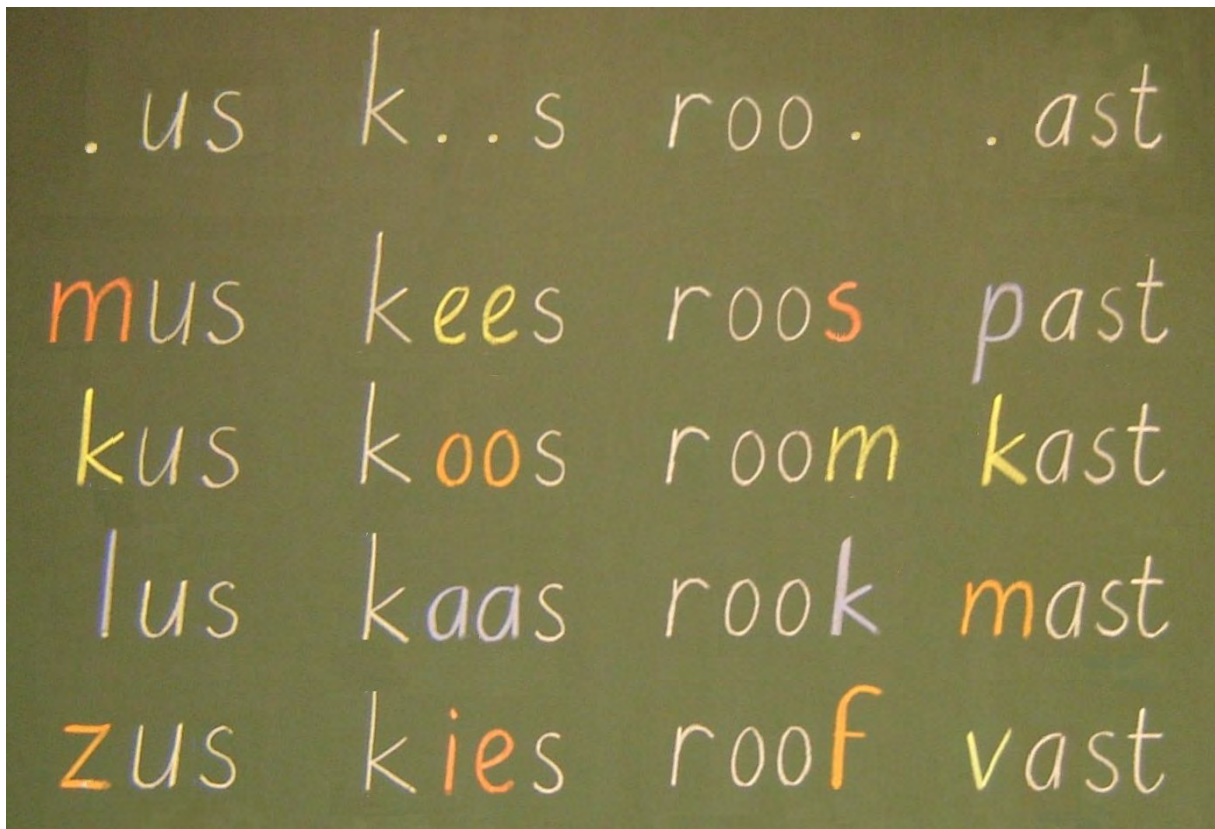 .us k..s roo. .ast
mus kees roos past
kus koos room kast
lus kaas rook mast
zus kies roof vast